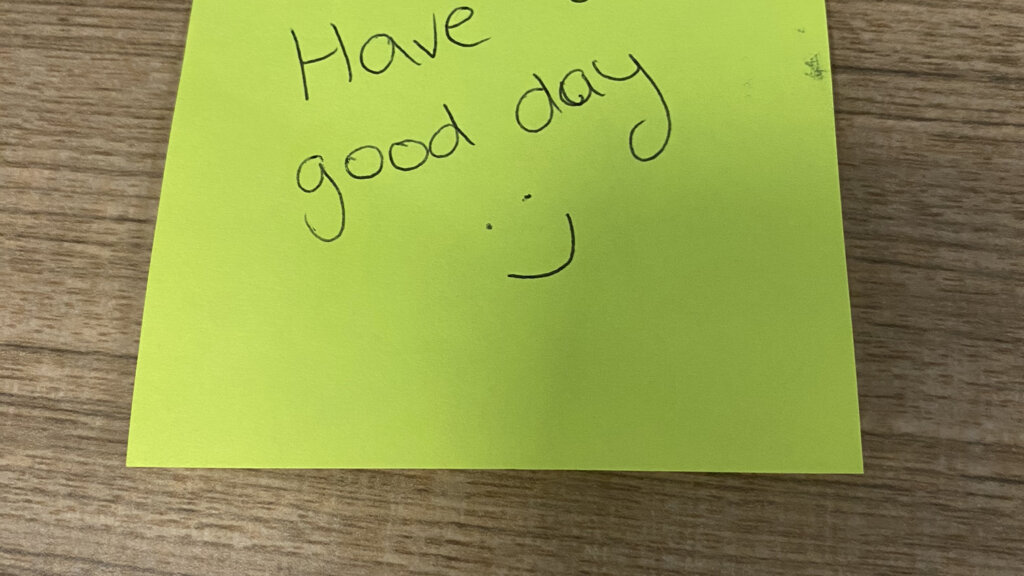 Have
good day